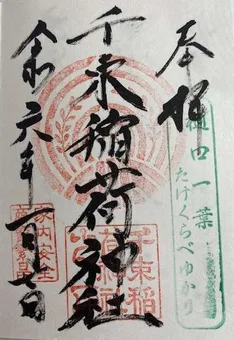 奉拝
樋口一葉
たけくらべゆかり
千束稲荷神社
千束稲
荷神社
令六年一月七日
家内安全